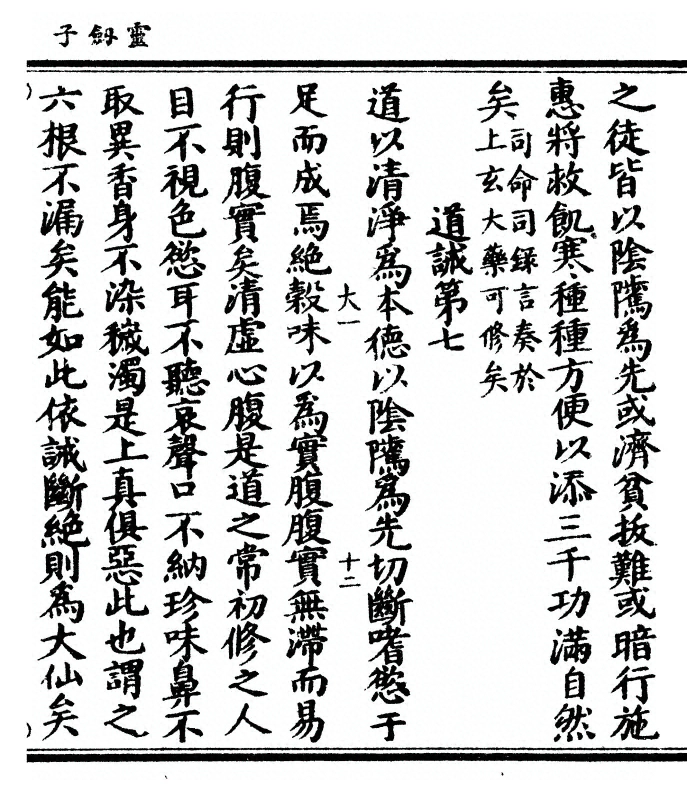 靈劔子
之徒皆以陰隲爲先或濟貧拔難或暗行施
惠將救飢寒種種方便以添三千功滿自然
矣司命司錄言奏於
上玄大藥可修矣
道誡第七
道以清淨爲本德以陰隲爲先切斷嗜慾于
大一
十二
足而成焉絕穀味以爲實腹腹實無滯而易
行則腹實矣清虛心腹是道之常初修之人
目不視色慾耳不聽哀聲口不納珍味鼻不
取異香身不染穢濁是上真俱惡此也謂之
六根不漏矣能如此依誡斷絕則爲大仙矣